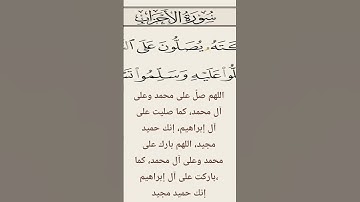 سُورَةُ الأَحْزَابِ
كَتَهُۥ يُصَلُّونَ عَلَى ٱل
لُّوا۟ عَلَيْهِ وَسَلِّمُوا۟ تَسْ
اللهم صلِ على محمد وعلى
آل محمد، كما صليت على
آل إبراهيم، إنك حميد
مجيد، اللهم بارك على
محمد وعلى آل محمد، كما
باركت على آل إبراهيم،
إنك حميد مجيد